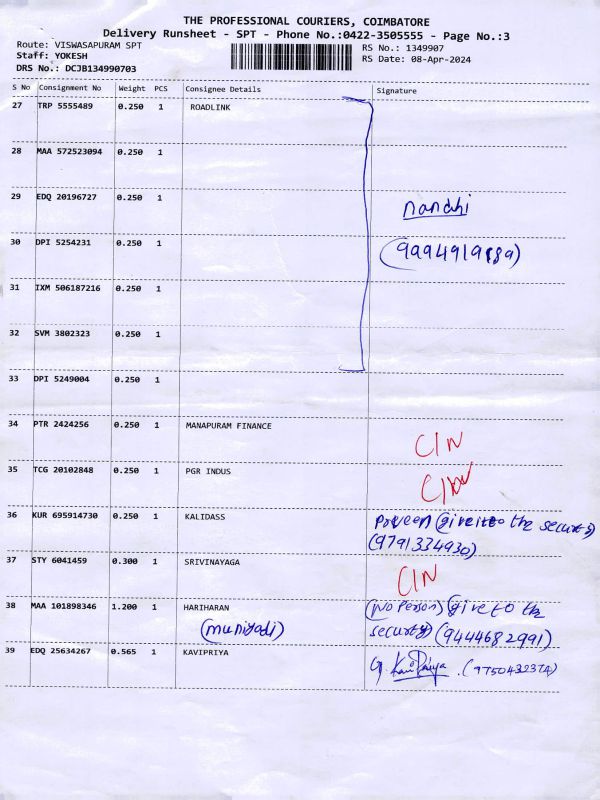 THE PROFESSIONAL COURIERS, COIMBATORE
Delivery Runsheet - SPT - Phone No.:0422-3505555 - Page No.:3
Route: VISWASAPURAM SPT RS No.: 1349907
Staff: YOKESH RS Date: 08-Apr-2024
DRS No.: DCJB134990703
S No Consignment No Weight PCS Consignee Details Signature
27 TRP 5555489 0.250 1 ROADLINK
28 MAA 572523094 0.250 1
29 EDQ 20196727 0.250 1
nandhi
30 DPI 5254231 0.250 1
31 IXM 506187216 0.250 1
32 SVM 3802323 0.250 1
33 DPI 5249004 0.250 1
34 PTR 2424256 0.250 1 MANAPURAM FINANCE
C/N
35 TCG 20102848 0.250 1 PGR INDUS
36 KUR 695914730 0.250 1 KALIDASS
Praveen (give to the security)
(9791334930)
37 STY 6041459 0.300 1 SRIVINAYAGA
C/N
38 MAA 101898346 1.200 1 HARIHARAN (No Person) (give to the
(muniyadi) security) (9444682991)
39 EDQ 25634267 0.565 1 KAVIPRIYA
G. KaviPriya